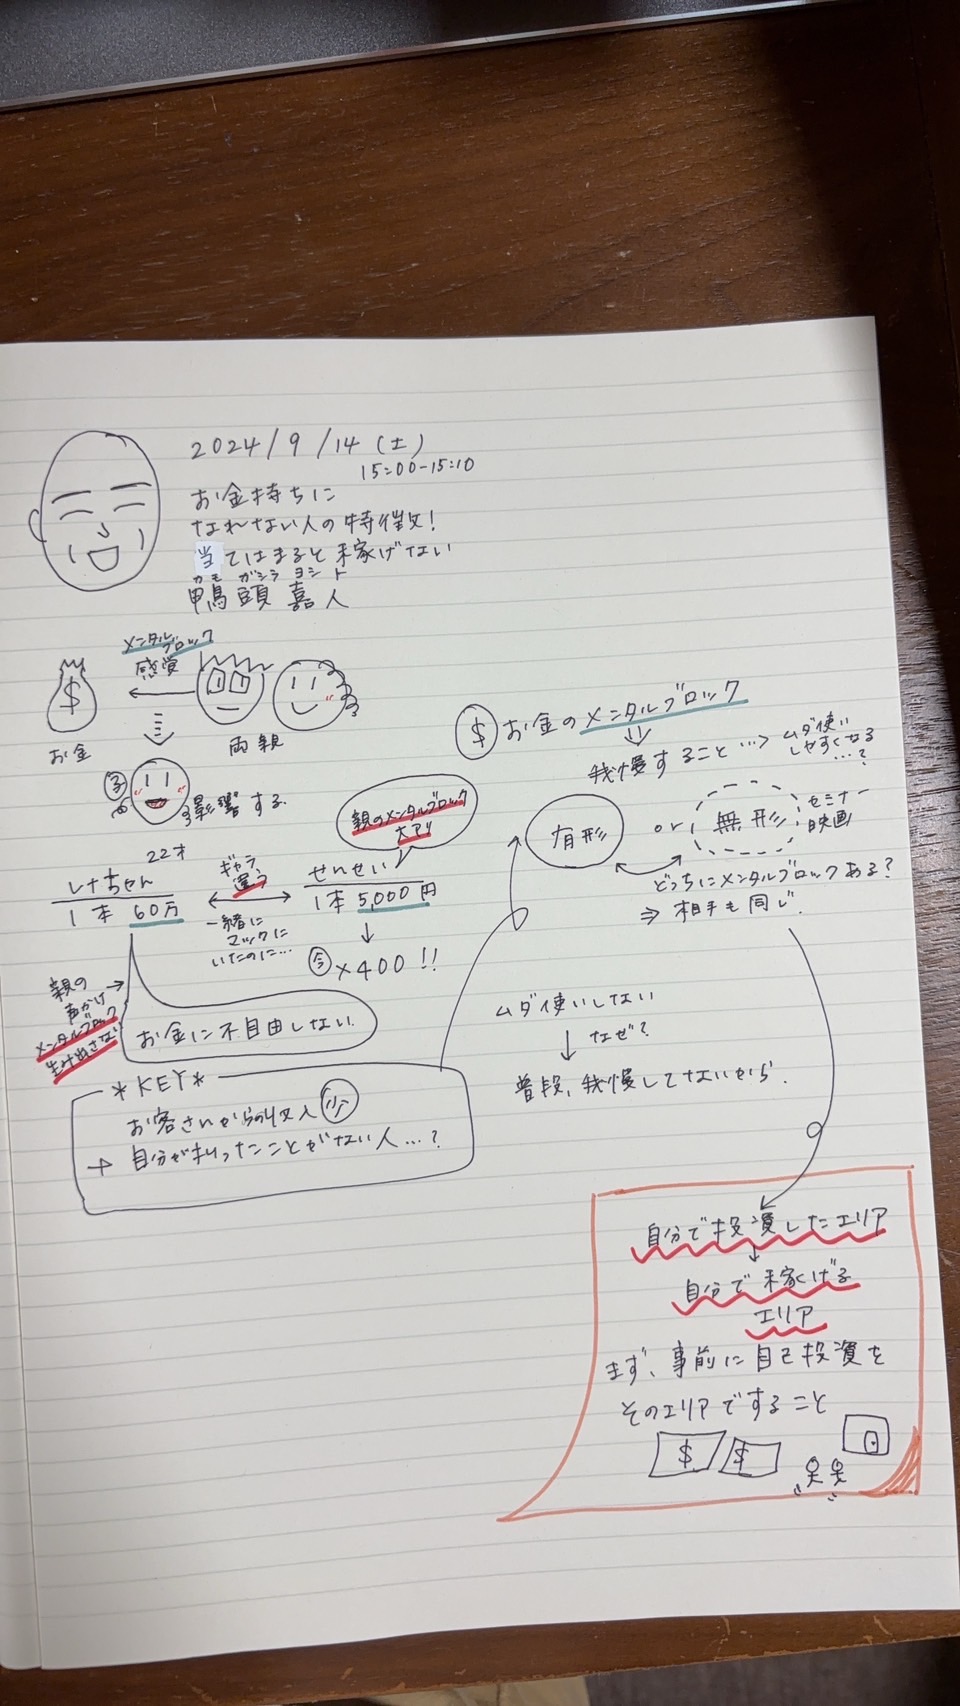 2024/9/14(土)
15:00-15:10
お金持ちに
なれない人の特徴!
当てはまると稼げない
カモ ガシラ ヨシト
鴨頭 嘉人
メンタル
ブロック
感覚
$
お金
両親
子
影響する
$ お金のメンタルブロック
⇓
我慢すること…> ムダ使い
しやすくなる
…?
有形 or 無形 セミナー
映画
どっちにメンタルブロックある?
⇒ 相手も同じ.
親のメンタルブロック
大アリ
22才
しなちゃん
1本 60万
ギャラ
違う
一緒に
マックに
いたのに…
せんせい
1本 5,000円
↓
今 ×400!!
親の
声かけ
メンタルブロック
生み出さない
お金に不自由しない
*KEY*
お客さんからの収入 少
→ 自分が払ったことがない人…?
ムダ使いしない
↓ なぜ?
普段、我慢してないから.
自分で投資したエリア
↓
自分で稼げる
エリア
まず、事前に自己投資を
そのエリアですること
$ $